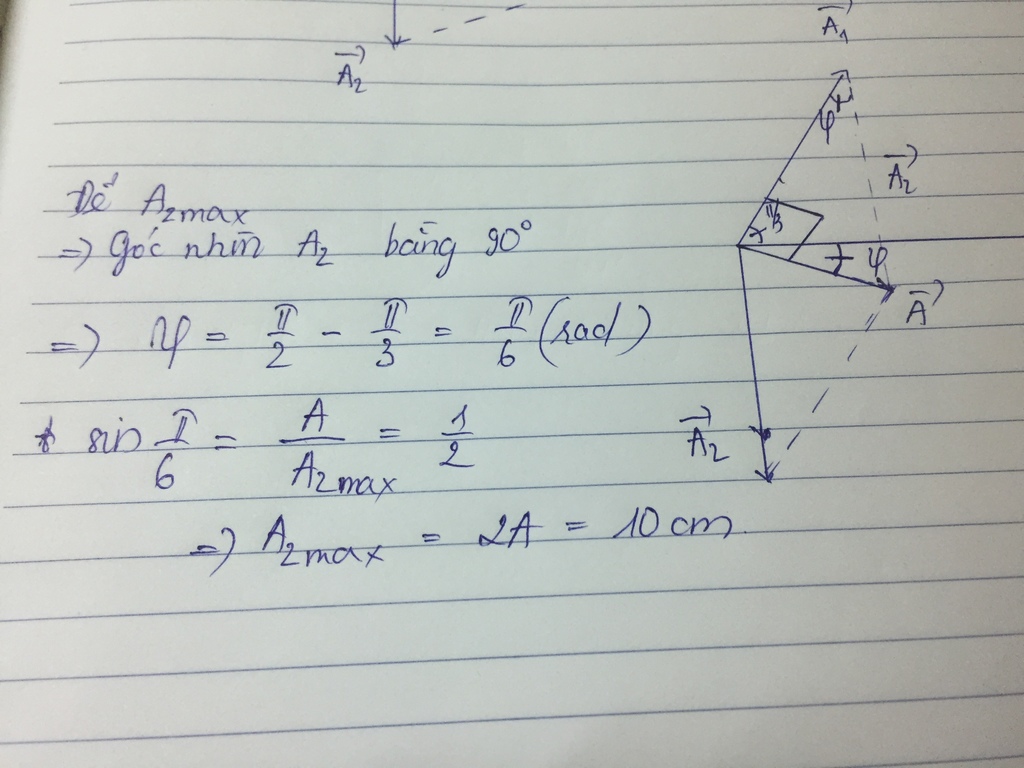 Để A₂max
=) góc nhìn A₂ bằng 90°
=) φ = π/2 - π/3 = π/6 (rad)
* sin π/6 = A/A₂max = 1/2
=) A₂max = 2A = 10 cm
A₂
A₁
A₂
π/3
φ
φ
A₂
A